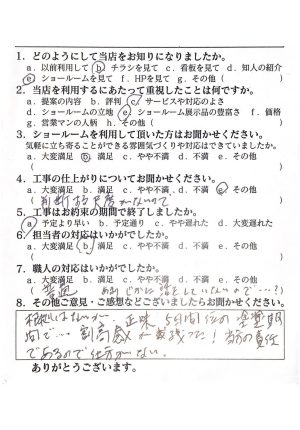 1. どのようにして当店をお知りになりましたか。
a. 以前利用して b. チラシを見て c. 看板を見て d. 知人の紹介
e. ショールームを見て f. HPを見て g. その他 ( )
2. 当店を利用するにあたって重視したことは何ですか。
a. 提案の内容 b. 評判 c. サービスや対応のよさ
d. ショールームの立地 e. ショールーム展示品の豊富さ f. 価格
g. 営業マンの人柄 h. その他 ( )
3. ショールームを利用して頂いた方はお聞かせください。
気軽に立ち寄ることができる雰囲気づくりや対応はできていましたか。
a. 大変満足 b. 満足 c. やや不満 d. 不満 e. その他
( )
4. 工事の仕上がりについてお聞かせください。
a. 大変満足 b. 満足 c. やや不満 d. 不満 e. その他
( 判断 がないので )
5. 工事はお約束の期間で終了しましたか。
a. 予定より早い b. 予定通り c. やや遅れた d. 大変遅れた
6. 担当者の対応はいかがでしたか。
a. 大変満足 b. 満足 c. やや不満 d. 不満 e. その他
( )
7. 職人の対応はいかがでしたか。
a. 大変満足 b. 満足 c. やや不満 d. 不満 e. その他
( 普通 あまりじかに話をしていないので…? )
8. その他ご意見・ご感想などございましたらお聞かせください。
はないが、正味 5日間位の塗装期
間で… 割高感が残った! 当方の責任
であるので仕方がない。
ありがとうございます。